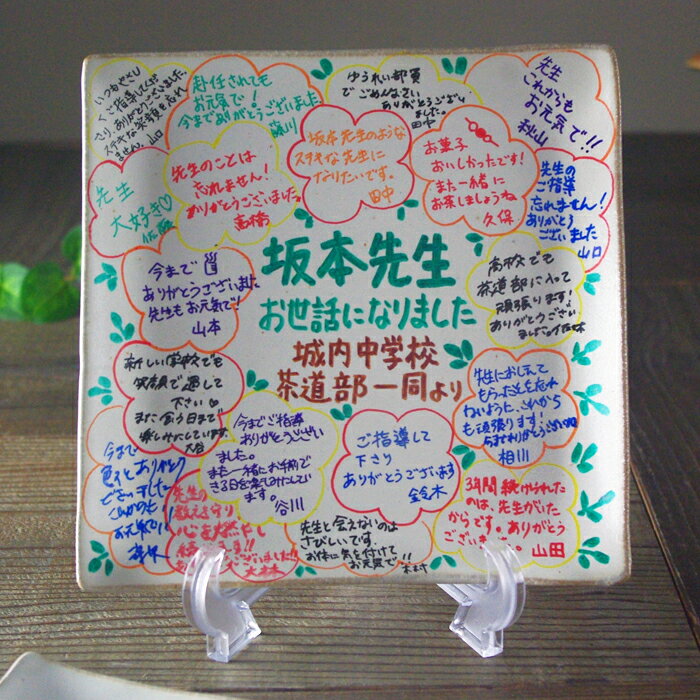 いつもやさしく
ご指導してくださり
ありがとうございました。
ステキな笑顔を忘れません。山口
赴任されても
お元気で！
今までありがとうございました
ゆうれい部員
でごめんなさい
ありがとうございました
田中
先生
これからも
お元気で!!
秋山
先生のことは
忘れません！
ありがとうございました。
高橋
坂本先生のような
ステキな先生に
なりたいです。
田中
お菓子
おいしかったです！
また一緒に
お茶しましょうね
久保
先生
大好き♡
先生の
ご指導
忘れません！
ありがとう
ございました
山口
今まで
ありがとうございました
先生もお元気で！
山本
坂本先生
お世話になりました
城内中学校
茶道部一同より
高校でも
茶道部に入って
頑張ります！
ありがとうござい
ました
新しい学校でも
笑顔で過して
下さい
また会う日まで
楽しみにしています
大谷
今までご指導
ありがとうござい
ました。
また一緒にお手前で
きる日を楽しみにしてい
ます。
谷川
ご指導して
下さり
ありがとうございます
鈴木
先生におしえて
もらったことを忘れ
ないように、これから
も頑張ります！
ありがとうございました
相川
今まで
色々とありがとう
ございました
お元気で!
先生の
教えを守り
心を燃やし
続けます!!
ございました!!
先生と会えないのは
さびしいです。
お体に気を付けて
お元気で!!
木村
3年間続けられた
のは、先生がいた
からです。ありがとう
ございました。山田